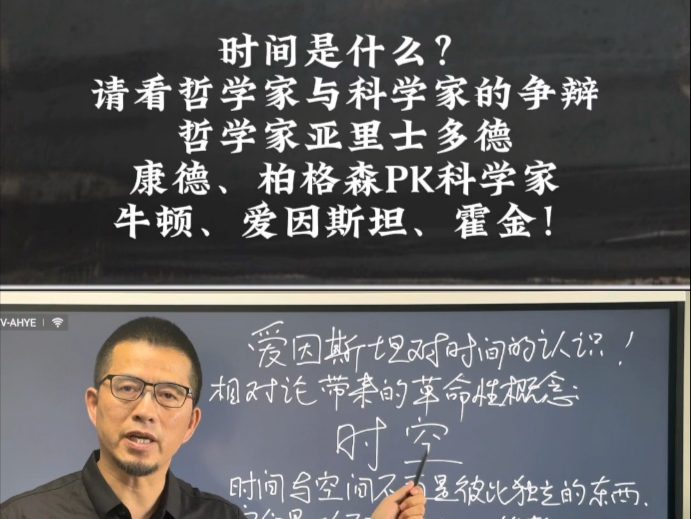 时间是什么？
请看哲学家与科学家的争辩
哲学家亚里士多德
康德、柏格森PK科学家
牛顿、爱因斯坦、霍金！
V-AHYE
爱因斯坦对时间的认识！
相对论带来的革命性概念：
时空
时间与空间不再是彼此独立的东西，